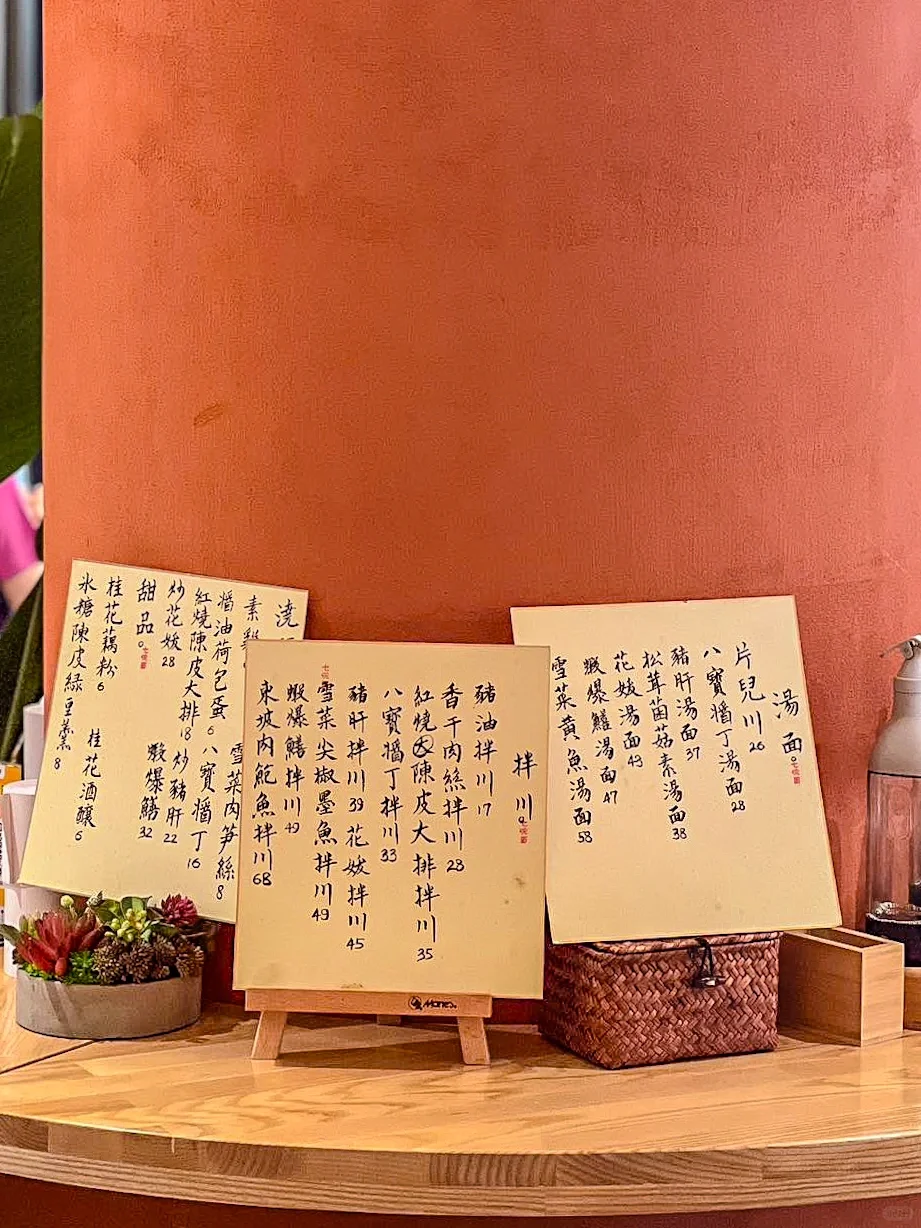 湯面。
片兒川 26
八寶醬丁湯面 28
豬肝湯面 37
松茸菌菇素湯面 38
花妭湯面
蝦爆鱔湯面 47
雪菜黃魚湯面 58
拌川。
豬油拌川 17
香干肉絲拌川 28
紅燒陳皮大排拌川 35
八寶醬丁拌川 33
豬肝拌川 39 花妭拌川 45
雪菜尖椒墨魚拌川 49
蝦爆鱔拌川 49
東坡肉鮑魚拌川 68
澆
素雞
醬油荷包蛋 6 雪菜肉笋絲 8
紅燒陳皮大排 18 八寶醬丁 16
炒花妭 28 炒豬肝 22
蝦爆鱔 32
甜品。
桂花藕粉 6 桂花酒釀 6
氷糖陳皮綠豆羹 8